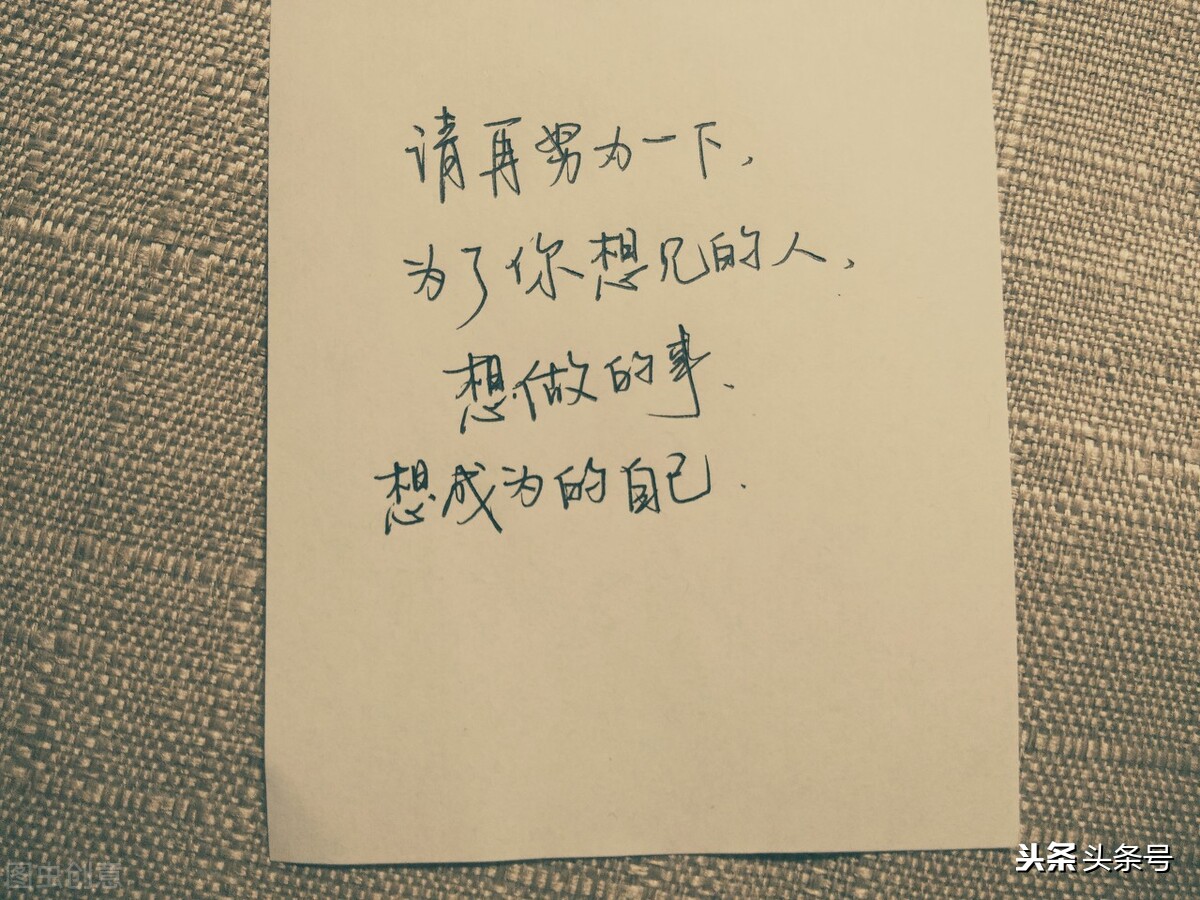 请再努力一下,
为了你想见的人,
想做的事、
想成为的自己.
头条 头条号
图虫创意